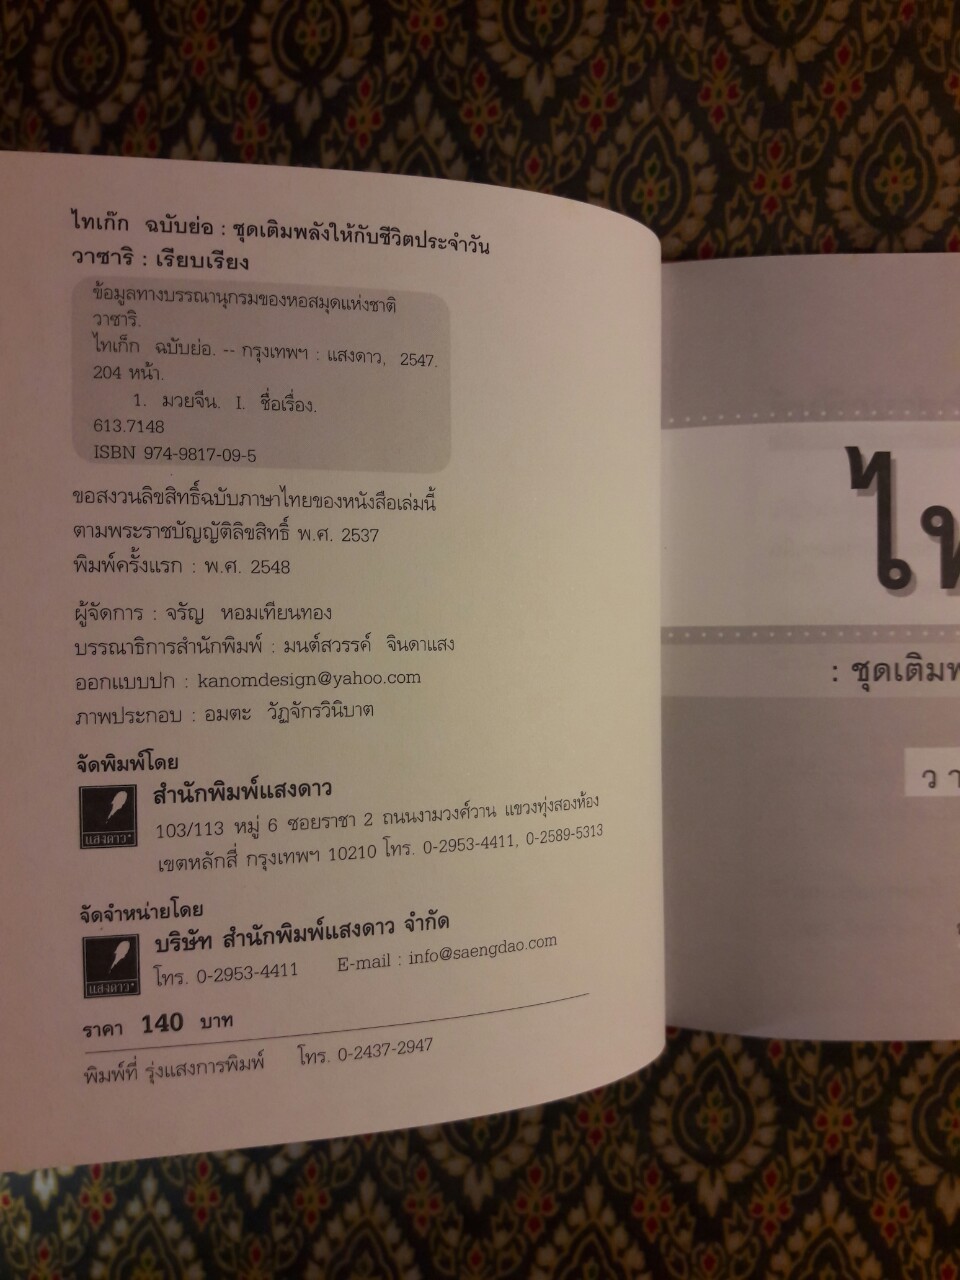 ไทเก๊ก ฉบับย่อ : ชุดเติมพลังให้กับชีวิตประจำวัน
วาซาริ : เรียบเรียง
ข้อมูลทางบรรณานุกรมของหอสมุดแห่งชาติ
วาซาริ.
ไทเก็ก ฉบับย่อ. -- กรุงเทพฯ : แสงดาว, 2547.
204 หน้า.
1. มวยจีน. I. ชื่อเรื่อง.
613.7148
ISBN 974-9817-09-5
ขอสงวนลิขสิทธิ์ฉบับภาษาไทยของหนังสือเล่มนี้
ตามพระราชบัญญัติลิขสิทธิ์ พ.ศ. 2537
พิมพ์ครั้งแรก : พ.ศ. 2548
ผู้จัดการ : จรัญ หอมเทียนทอง
บรรณาธิการสำนักพิมพ์ : มนต์สวรรค์ จินดาแสง
ออกแบบปก : kanomdesign@yahoo.com
ภาพประกอบ : อมตะ วัฏจักรวินิบาต
จัดพิมพ์โดย
แสงดาว
สำนักพิมพ์แสงดาว
103/113 หมู่ 6 ซอยราชา 2 ถนนงามวงศ์วาน แขวงทุ่งสองห้อง
เขตหลักสี่ กรุงเทพฯ 10210 โทร. 0-2953-4411, 0-2589-5313
จัดจำหน่ายโดย
แสงดาว
บริษัท สำนักพิมพ์แสงดาว จำกัด
โทร. 0-2953-4411 E-mail : info@saengdao.com
ราคา 140 บาท
พิมพ์ที่ รุ่งแสงการพิมพ์ โทร. 0-2437-2947
ไท
: ชุดเติมพ
วา